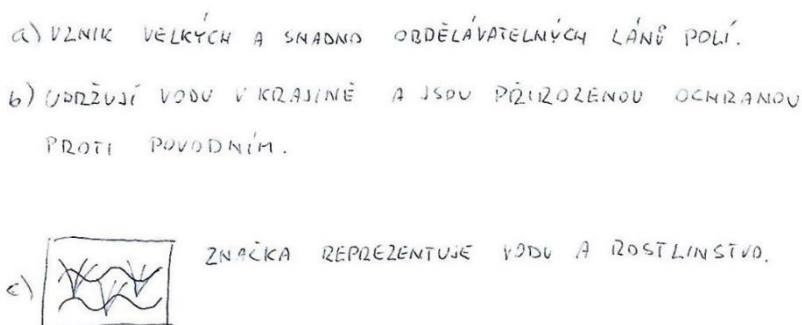 a) VZNIK VELKÝCH A SNADNO OBDĚLÁVATELNÝCH LÁNŮ POLÍ.
b) UDRŽUJÍ VODU V KRAJINĚ A JSOU PŘIROZENOU OCHRANOU
PROTI POVODNÍM.
c) ZNAČKA REPREZENTUJE VODU A ROSTLINSTVO.